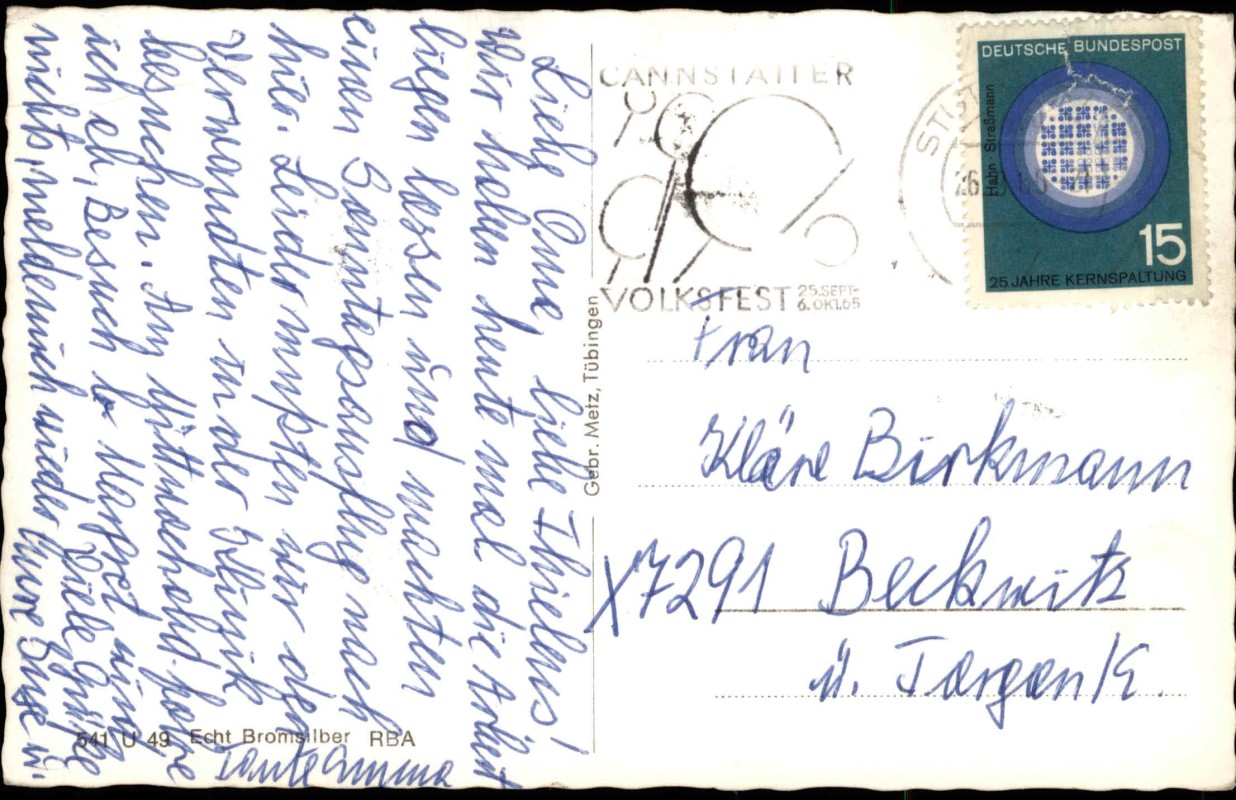 Liebe Oma, liebe Thielens!
Wir haben heute mal die Arbeit
liegen lassen und machten
einen Sonntagsausflug nach
hier. Leider mußten wir den
Verwandten in der Klinik
besuchen. Am Mittwochabd. fahre
ich ev. Besuch
nichts, melde mich wieder Eure
Viele Grüße
Tante Emma
541 U 49 Echt Bromsilber RBA
Gebr. Metz, Tübingen
CANNSTATTER
VOLKSFEST 25.SEPT-
6.OKT.65
DEUTSCHE BUNDESPOST
Hahn Straßmann
15
25 JAHRE KERNSPALTUNG
Frau
Kläre Birkmann
X7291 Beckwitz
ü. Torgau/E.